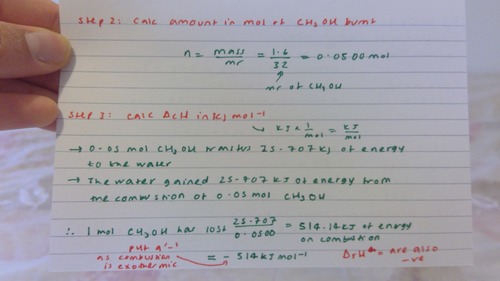 Step 2: Calc amount in mol of CH₃OH burnt
n = mass/mr = 1.6/32 = 0.0500 mol
mr of CH₃OH
Step 3: Calc ΔcH in kJ mol⁻¹
kJ × 1/mol = kJ/mol
→ 0.05 mol CH₃OH 25.707 kJ of energy
to the water
→ The water gained 25.707 kJ of energy from
the combustion of 0.05 mol CH₃OH
∴ 1 mol CH₃OH has lost 25.707/0.0500 = 514.14 kJ of energy
on combustion
put a '-'
as combustion
is exothermic
= -514 kJ mol⁻¹
ΔfH = are also
-ve